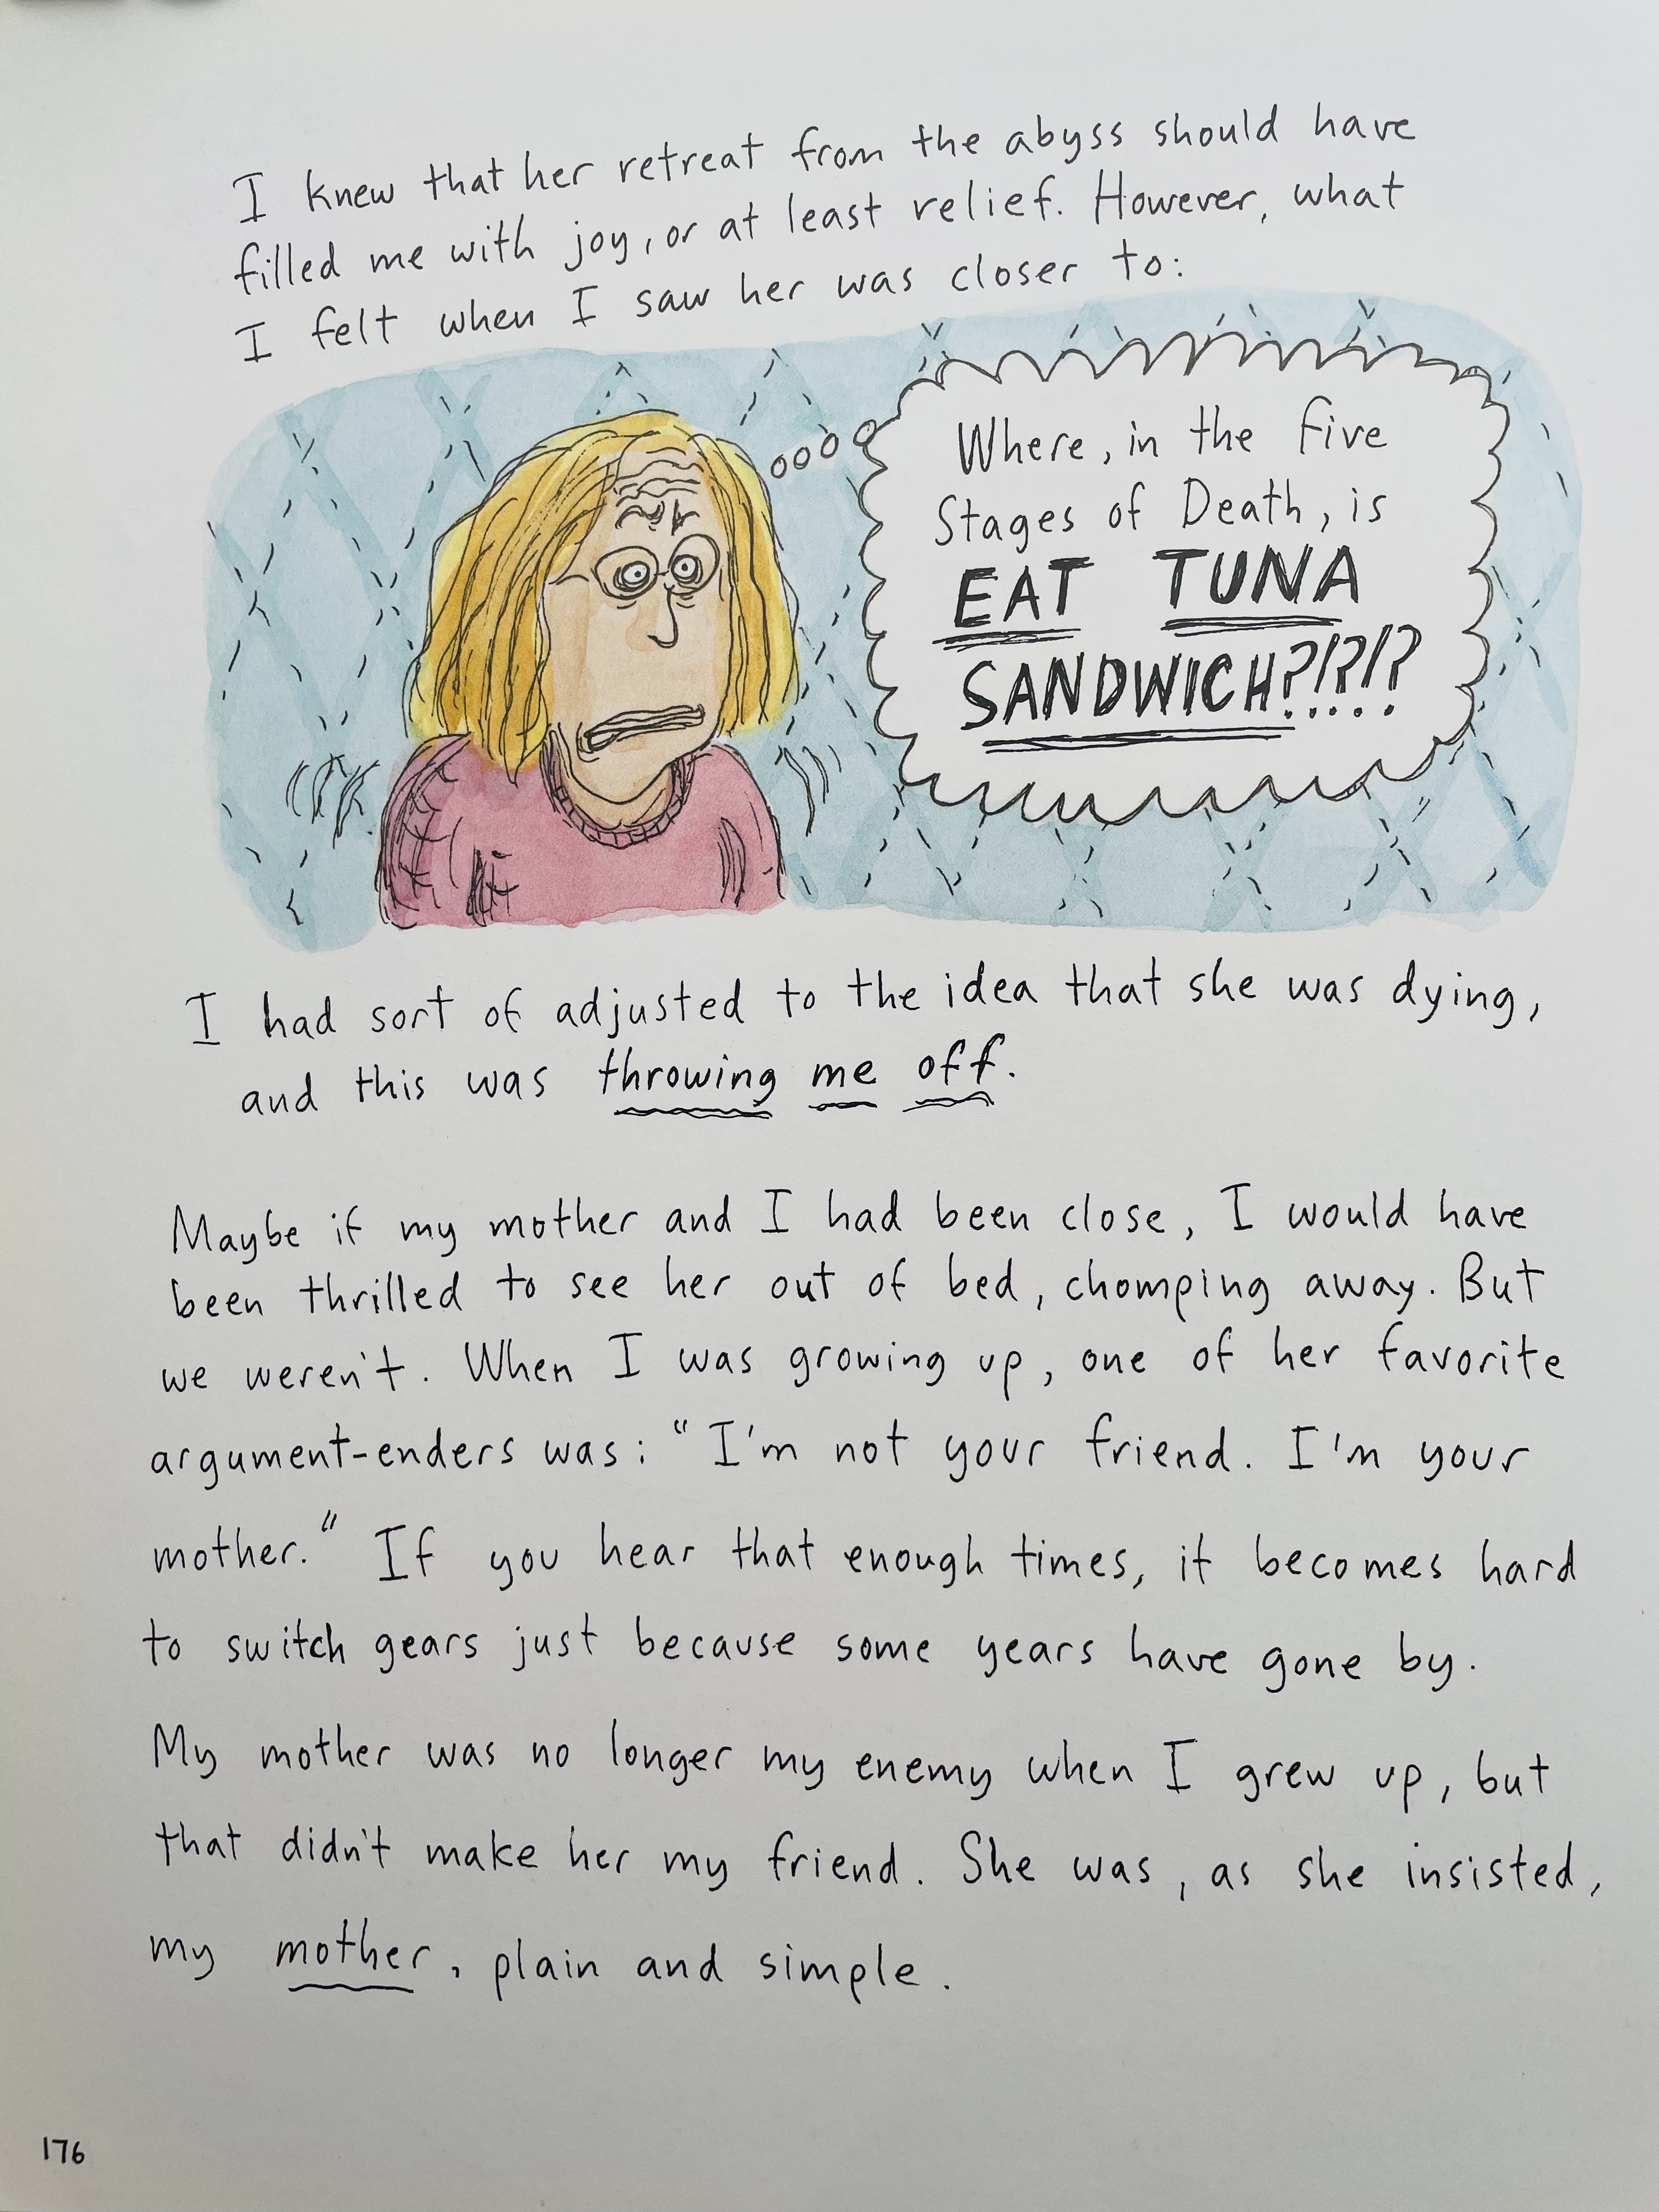 I knew that her retreat from the abyss should have
filled me with joy, or at least relief. However, what
I felt when I saw her was closer to:
Where, in the Five
Stages of Death, is
EAT TUNA
SANDWICH?!?!?
I had sort of adjusted to the idea that she was dying,
and this was throwing me off.
Maybe if my mother and I had been close, I would have
been thrilled to see her out of bed, chomping away. But
we weren't. When I was growing up, one of her favorite
argument-enders was: "I'm not your friend. I'm your
mother." If you hear that enough times, it becomes hard
to switch gears just because some years have gone by.
My mother was no longer my enemy when I grew up, but
that didn't make her my friend. She was, as she insisted,
my mother, plain and simple.
176